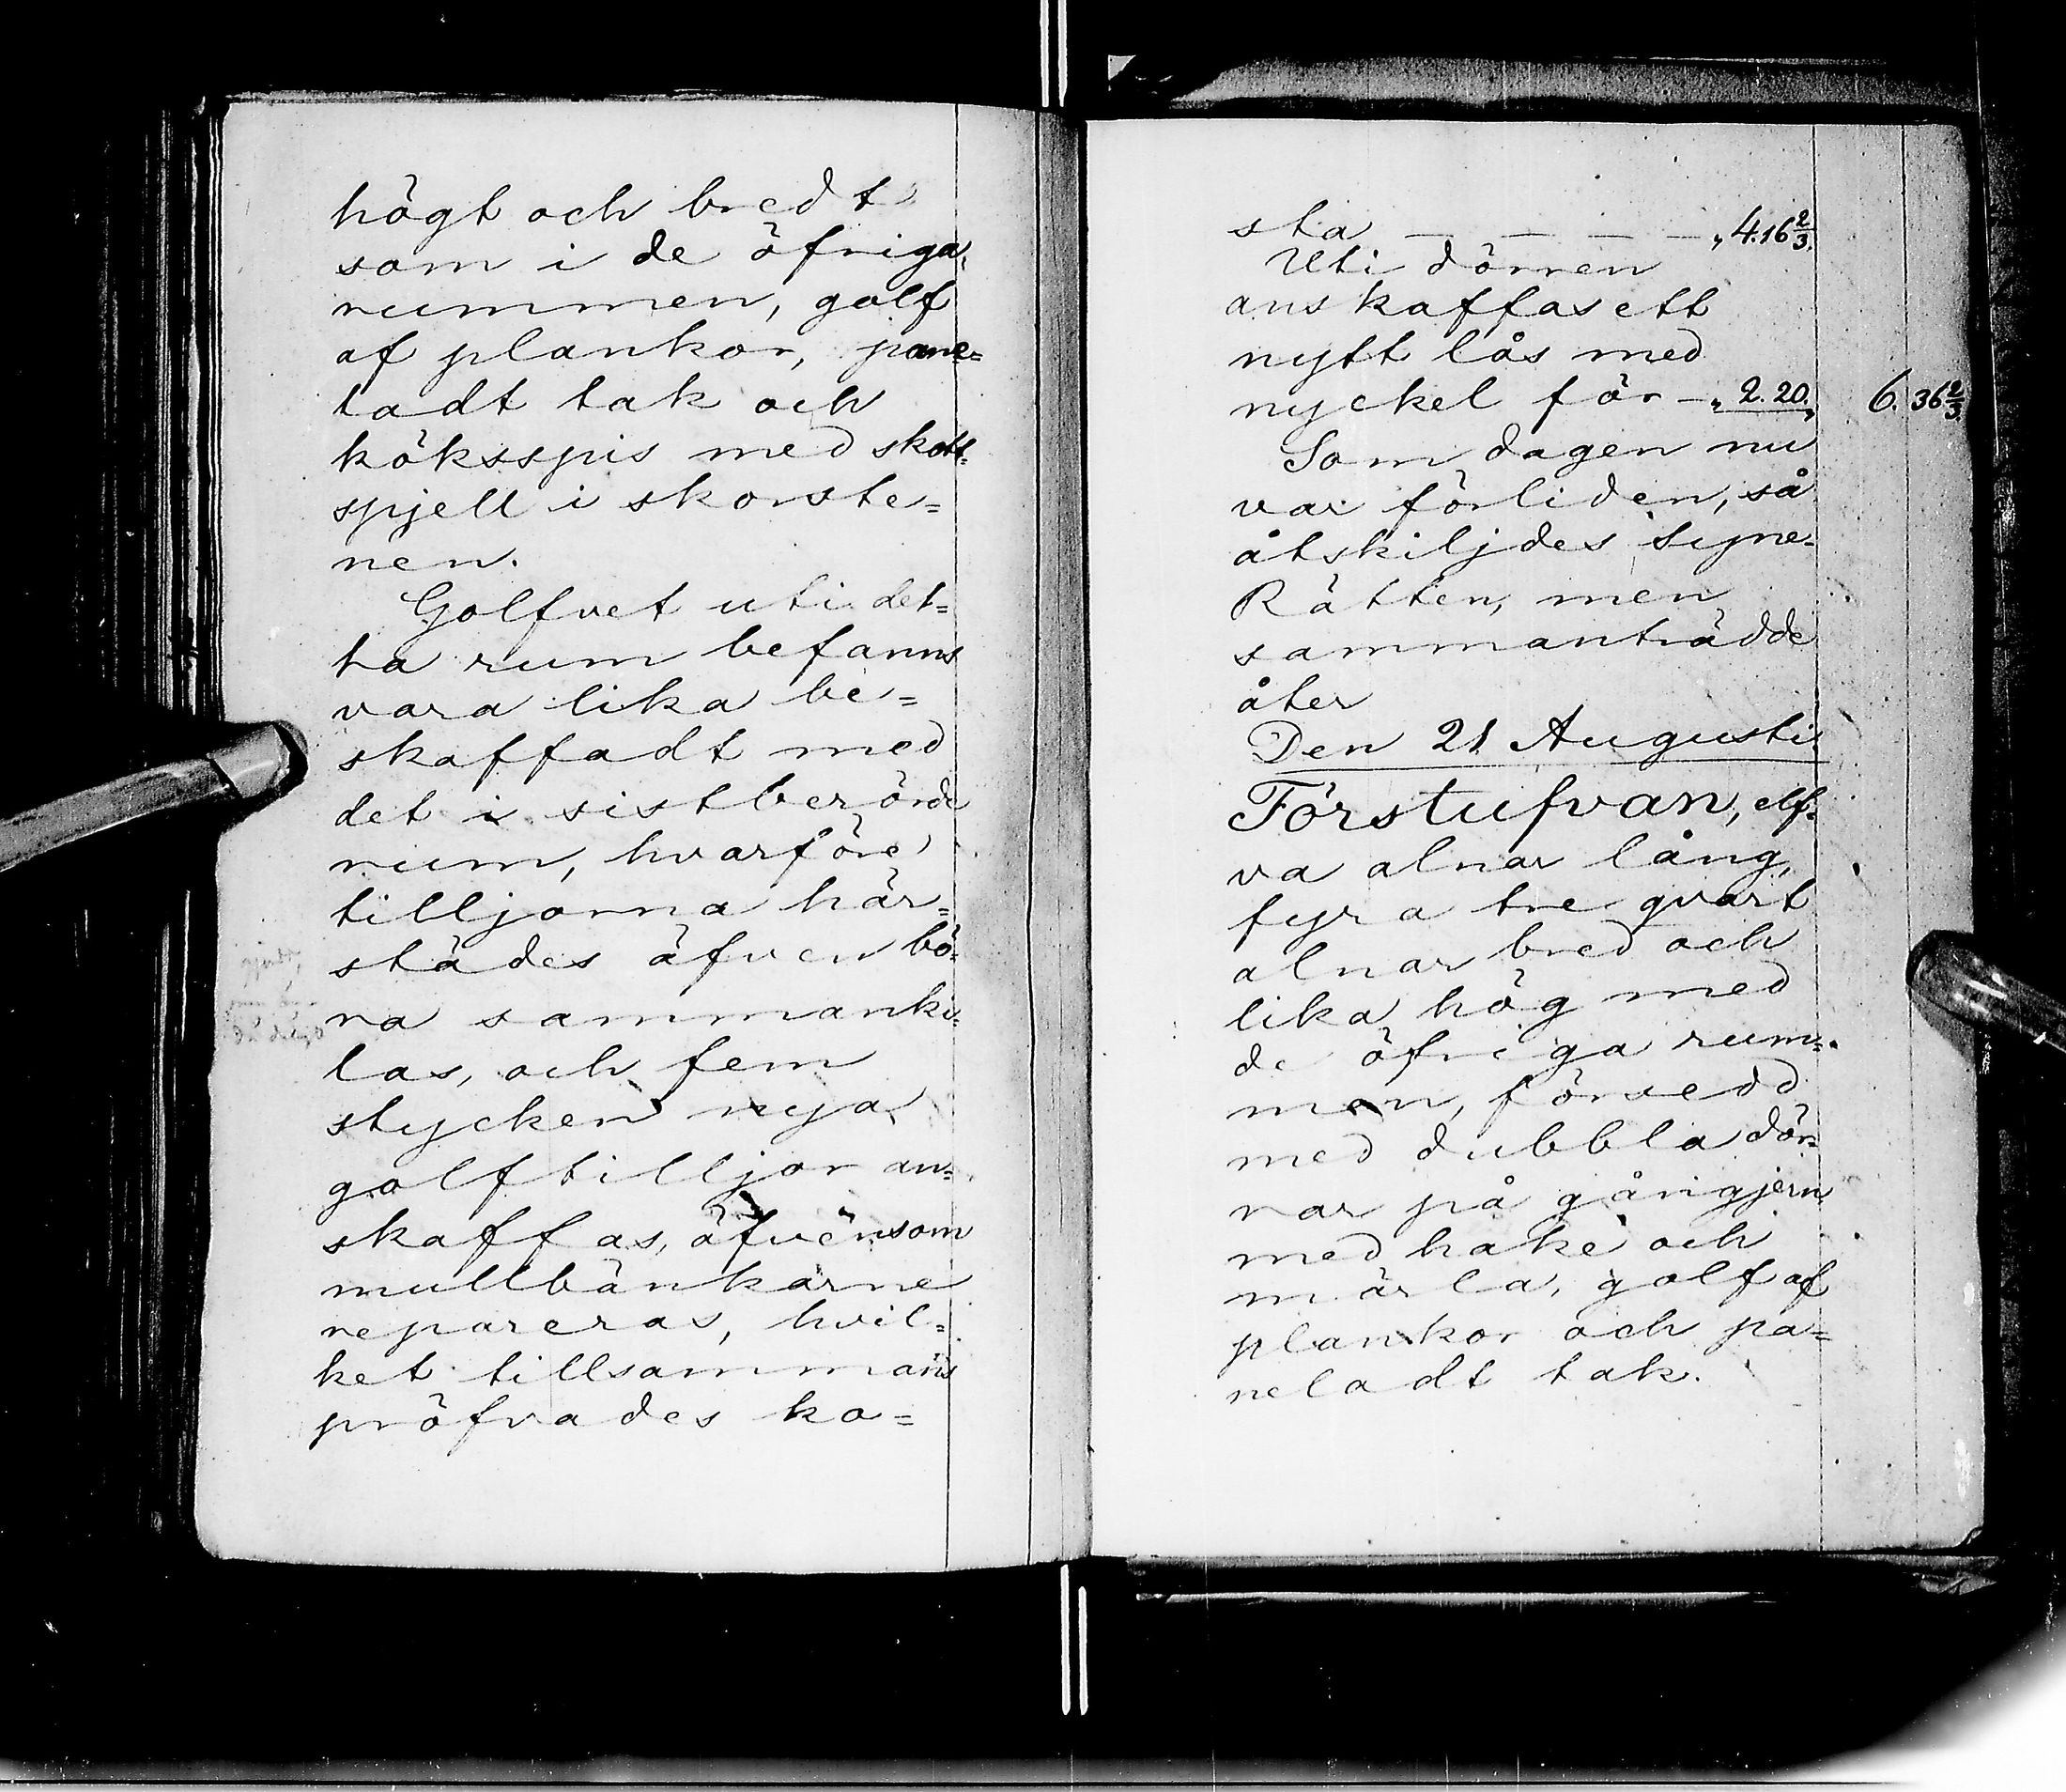 högt och bredt
som i de öfriga
rummen, golf
af plankor, pane=
ladt tak och
köksspis med skott=
spjell i skorste=
nen.
Golfvet uti det=
ta rum befanns
vara lika be=
skaffadt med
det i sistberörde
rum, hvarföre
tilljorna här=
städes äfven bö=
ra sammanki=
las, och fem
stycken nya
golftilljor an=
skaffas, äfvensom
mullbänkarne
repareras, hvil=
ket tillsammans
pröfvades ko=
sta — — — — „ 4.16 2/3.
Uti dörren
anskaffas ett
nytt lås med
nyckel för — „ 2.20. „ 6. 36 2/3
Som dagen nu
var förliden, så
åtskiljdes Syne=
Rätten, men
sammanträdde
åter
Den 21 Augusti
Förstufvan, elf=
va alnar lång,
fyra tre qvart
alnar bred och
lika hög med
de öfriga rum=
men, försedd
med dubbla dör=
rar på gångjern
med hake och
märla, golf af
plankor och pa=
neladt tak.